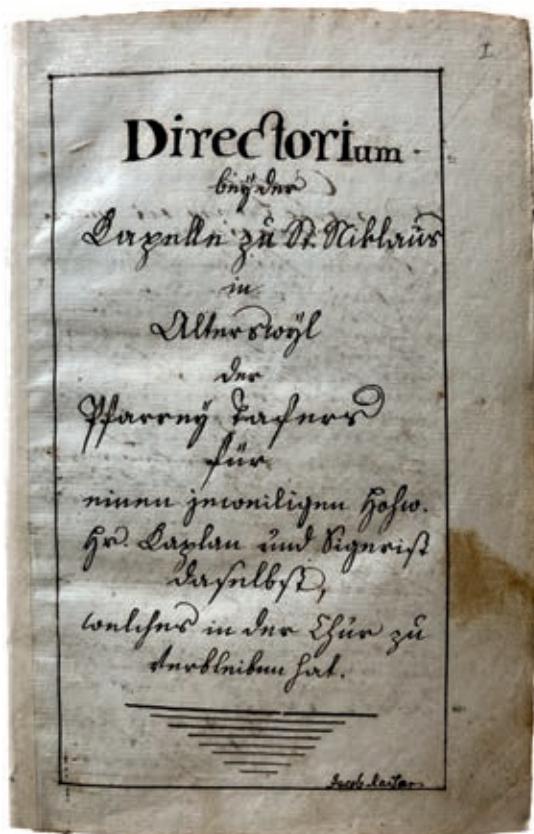 1
Directorium
beÿ der
Kapelle zu St. Niklaus
in
Alterswÿl
der
Pfarreÿ Tafers
für
einen jeweiligen Hohw.
Hr. Kaplan und Sigerist
daselbst,
welches in der Chur zu
verbleiben hat.
Jacob